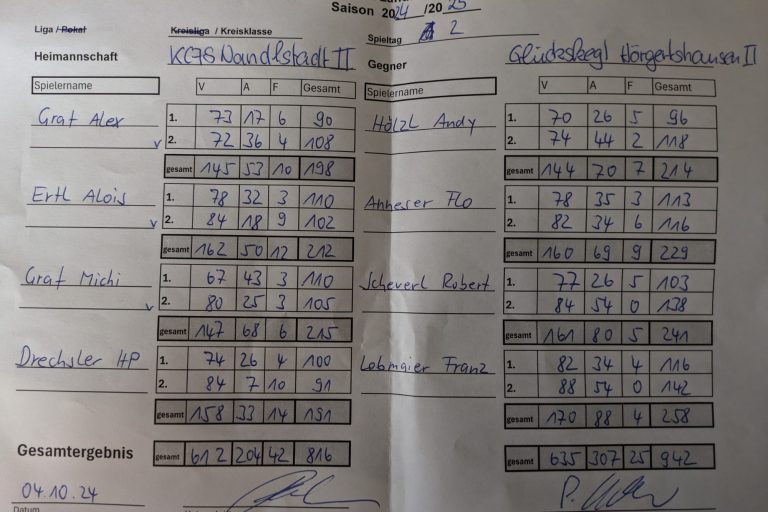 Saison 2024 /20 25
Liga / Pokal Kreisliga / Kreisklasse Spieltag 2
Heimannschaft KC78 Nandlstadt II Gegner Glückskegl Hörgertshausen II
Spielername V A F Gesamt Spielername V A F Gesamt
Graf Alex 1. 73 17 6 90 Hölzl Andy 1. 70 26 5 96
2. 72 36 4 108 2. 74 44 2 118
gesamt 145 53 10 198 gesamt 144 70 7 214
Ertl Alois 1. 78 32 3 110 Anneser Flo 1. 78 35 3 113
2. 84 18 9 102 2. 82 34 6 116
gesamt 162 50 12 212 gesamt 160 69 9 229
Graf Michi 1. 67 43 3 110 Scheuerl Robert 1. 77 26 5 103
2. 80 25 3 105 2. 84 54 0 138
gesamt 147 68 6 215 gesamt 161 80 5 241
Drechsler HP 1. 74 26 4 100 Lobmaier Franz 1. 82 34 4 116
2. 84 7 10 91 2. 88 54 0 142
gesamt 158 33 14 191 gesamt 170 88 4 258
Gesamtergebnis gesamt 612 204 42 816 gesamt 635 307 25 942
04.10.24
Datum